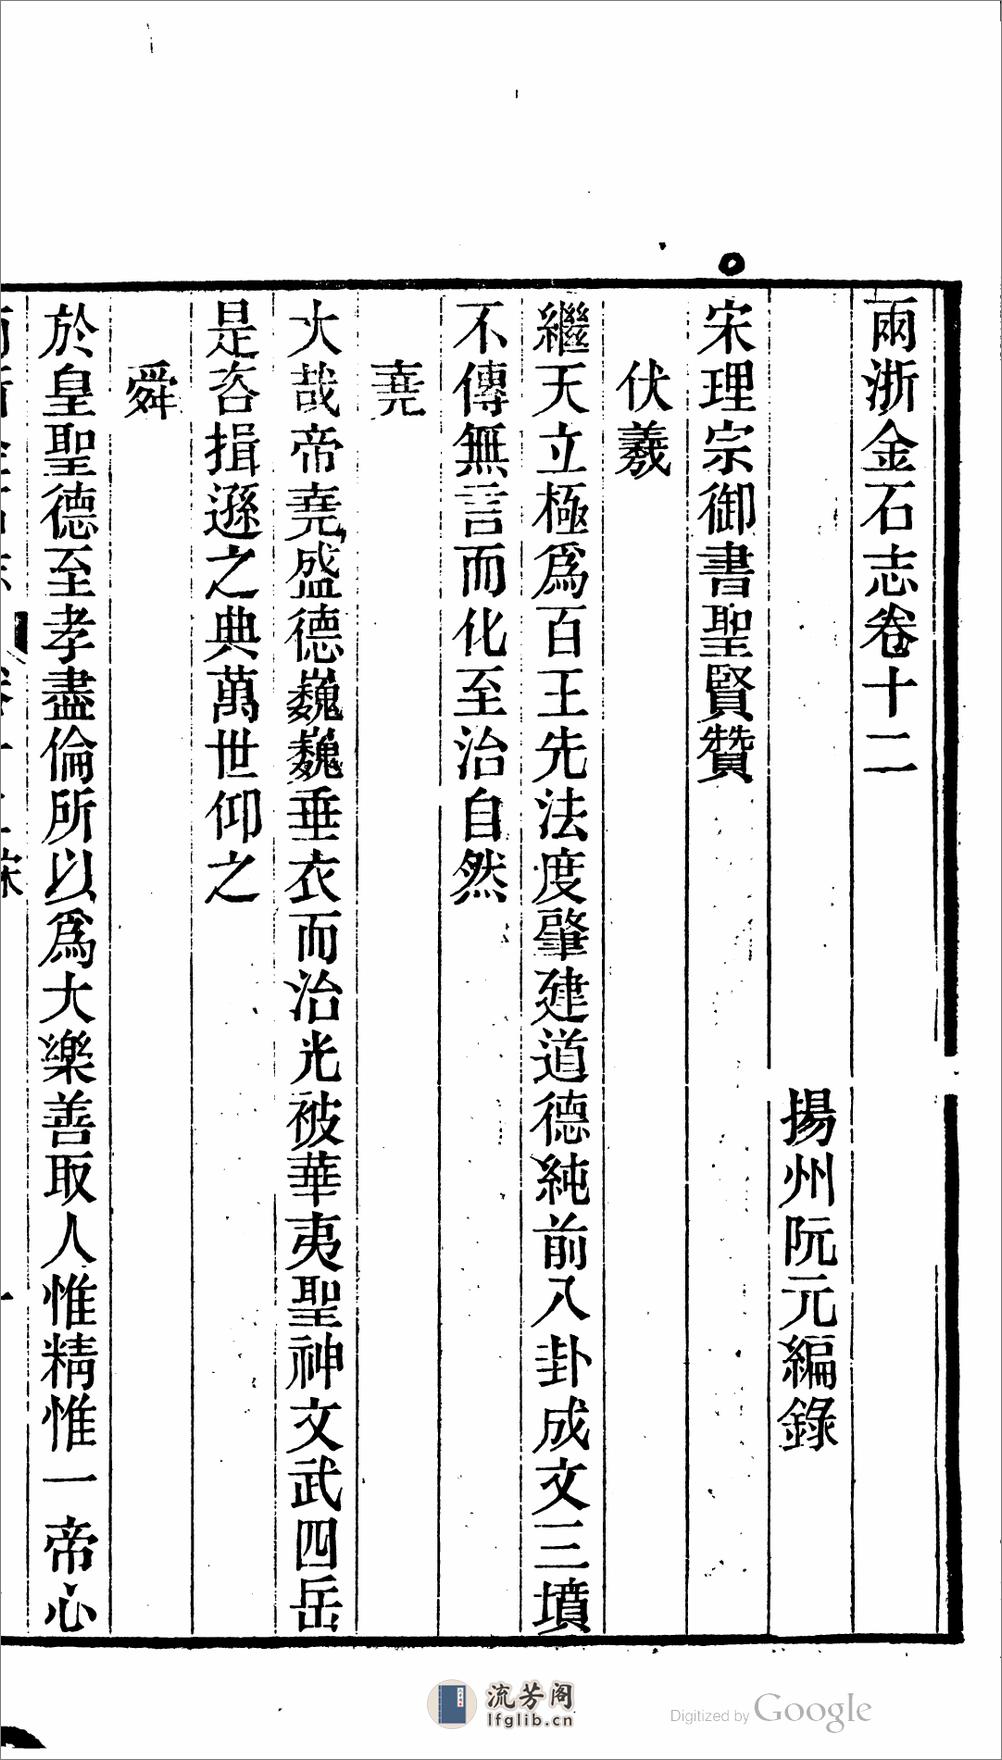 兩浙金石志卷十二
揚州阮元編錄
宋理宗御書聖賢贊
伏羲
繼天立極爲百王先法度肇建道德純前八卦成文三墳
不傳無言而化至治自然
堯
大哉帝堯盛德巍巍垂衣而治光被華夷聖神文武四岳
是咨揖遜之典萬世仰之
舜
於皇聖德至孝盡倫所以爲大樂善取人惟精惟一帝心
流芳阁
lfglib.cn
Digitized by Google